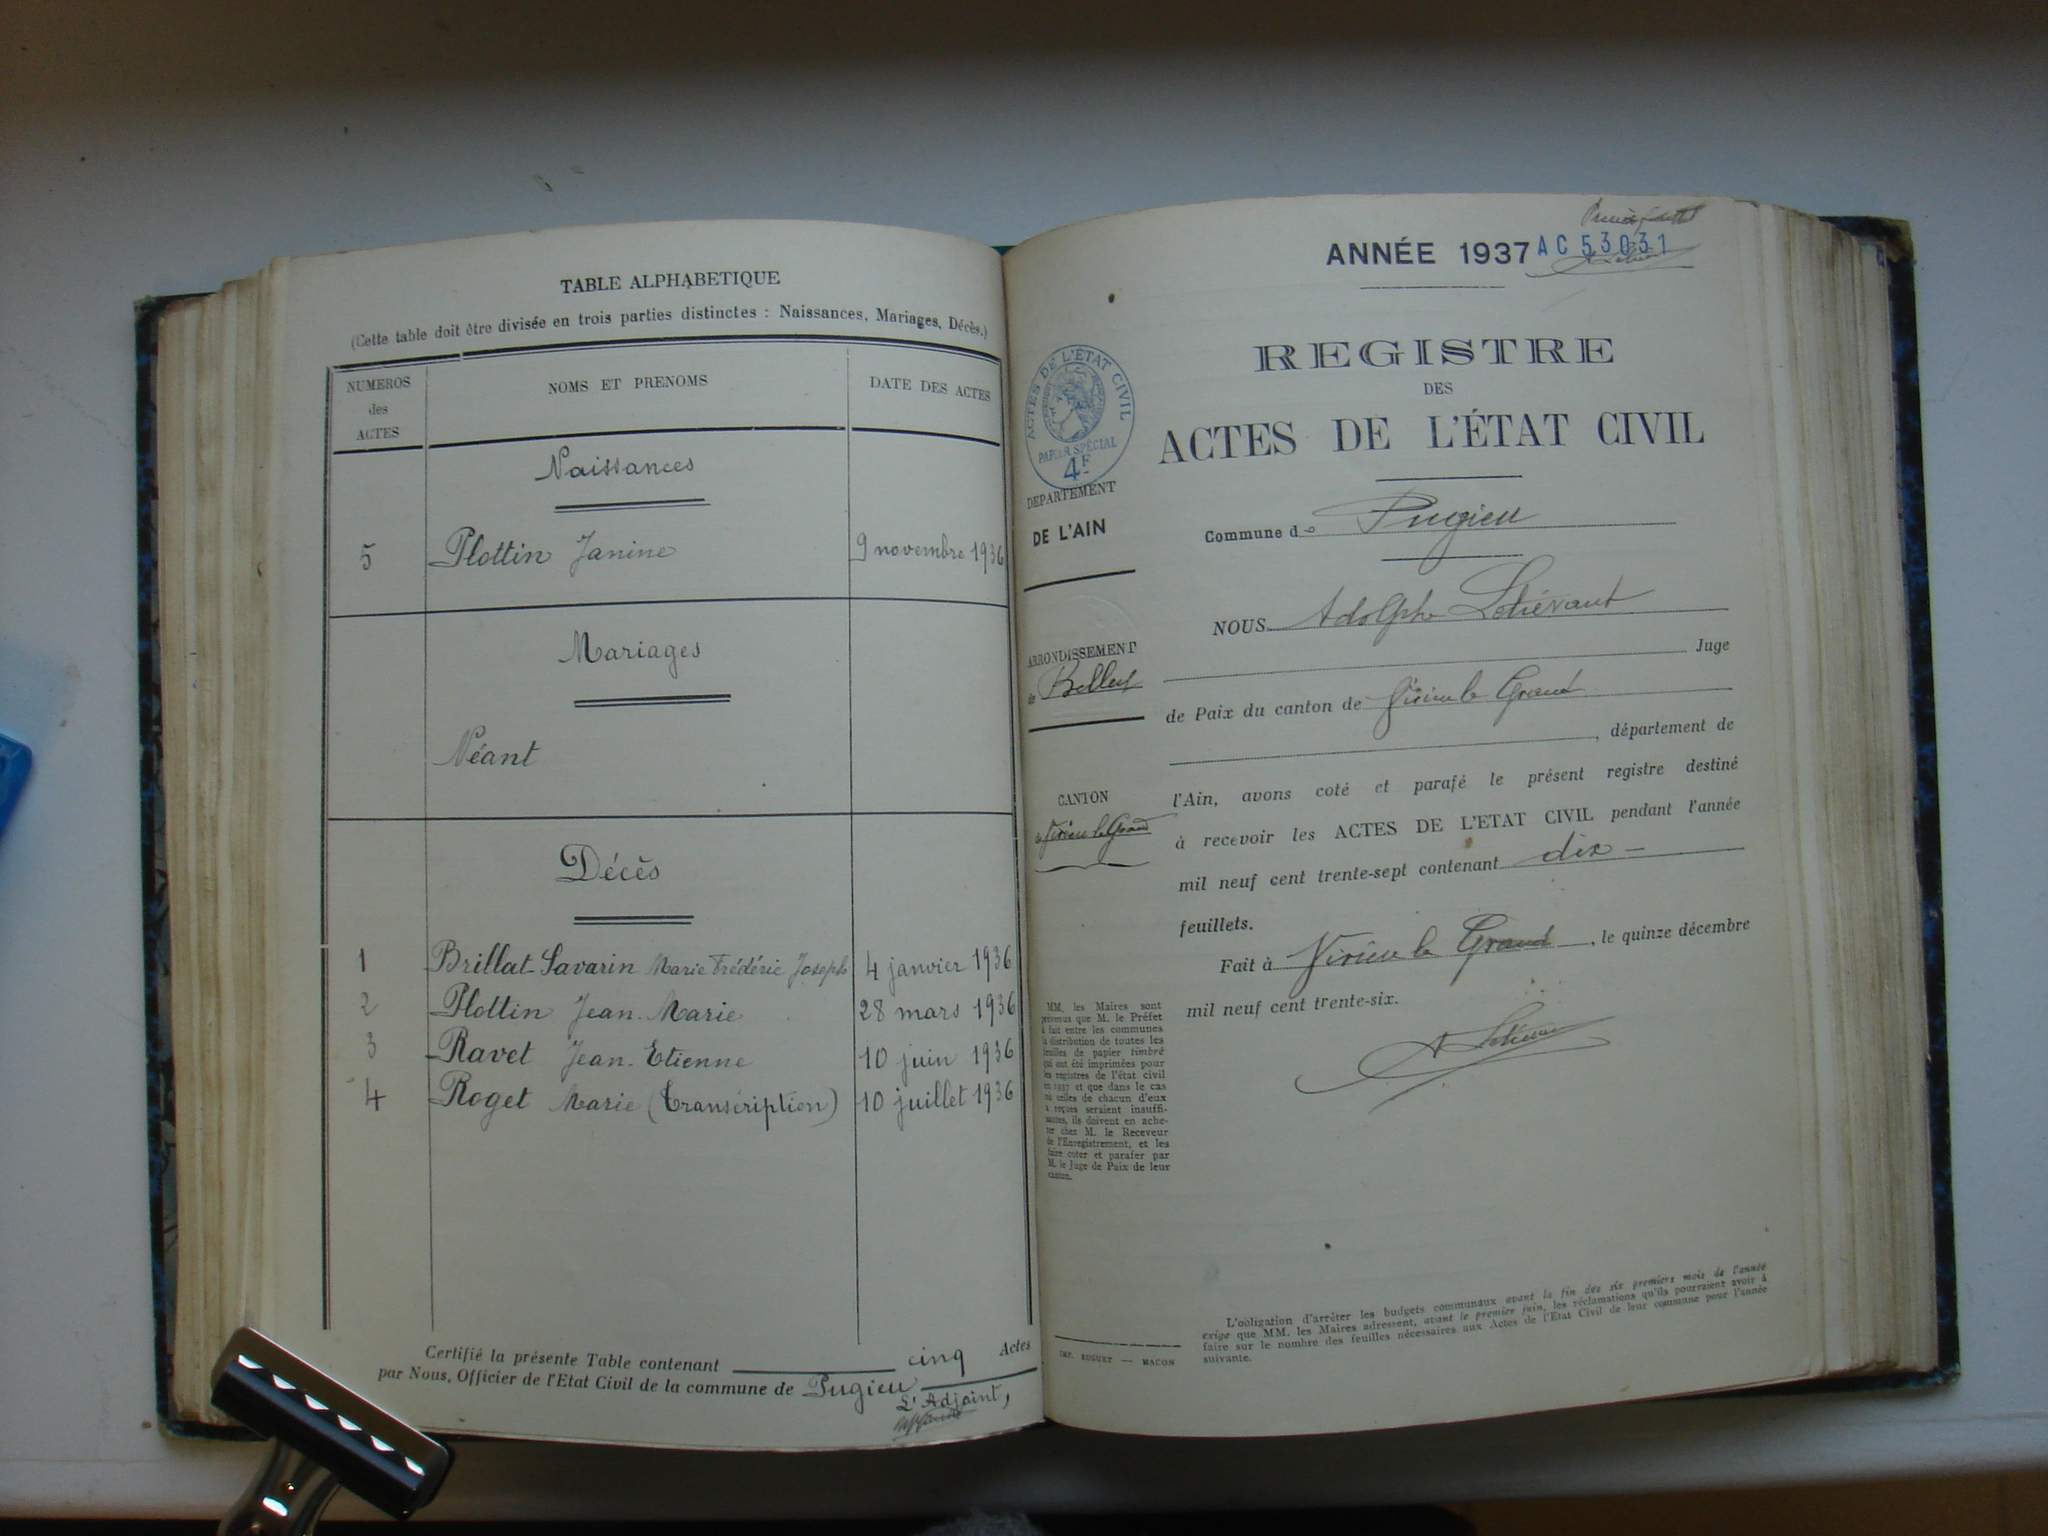 TABLE ALPHABETIQUE
(Cette table doit être divisée en trois parties distinctes : Naissances, Mariages, Décès.)
NUMEROS des ACTES NOMS ET PRENOMS DATE DES ACTES
Naissances
5 Plottin Janine 9 novembre 1936
Mariages
Néant
Décès
1 Brillat-Savarin Marie Frédéric Joseph 4 janvier 1936
2 Plottin Jean-Marie 28 mars 1936
3 Ravet Jean-Etienne 10 juin 1936
4 Roget Marie (Transcription) 10 juillet 1936
Certifié la présente Table contenant cinq Actes
par Nous, Officier de l'Etat Civil de la commune de Pugieu
L'Adjoint,
ANNÉE 1937 AC 53031
REGISTRE
DES
ACTES DE L'ÉTAT CIVIL
ACTES DE L'ÉTAT CIVIL
PAPIER SPÉCIAL
4F
DEPARTEMENT
DE L'AIN
Commune de Pugieu
NOUS Adolphe Létiévant
Juge
ARRONDISSEMENT
de Belley
de Paix du canton de Virieu le Grand
, département de
CANTON
de Virieu le Grand
l'Ain, avons coté et parafé le présent registre destiné
à recevoir les ACTES DE L'ETAT CIVIL pendant l'année
mil neuf cent trente-sept contenant dix
feuillets.
Fait à Virieu le Grand, le quinze décembre
mil neuf cent trente-six.
MM. les Maires sont
prévenus que M. le Préfet
a fait entre les communes
la distribution de toutes les
feuilles de papier timbré
qui ont été imprimées pour
les registres de l'état civil
en 1937 et que dans le cas
où celles de chacun d'eux
a reçues seraient insuffi-
santes, ils doivent en ache-
ter chez M. le Receveur
de l'Enregistrement, et les
faire coter et parafer par
M. le Juge de Paix de leur
canton.
IMP. BUGUET — MACON
L'obligation d'arrêter les budgets communaux avant la fin des six premiers mois de l'année
exige que MM. les Maires adressent, avant le premier juin, les réclamations qu'ils pourraient avoir à
faire sur le nombre des feuilles nécessaires aux Actes de l'Etat Civil de leur commune pour l'année
suivante.